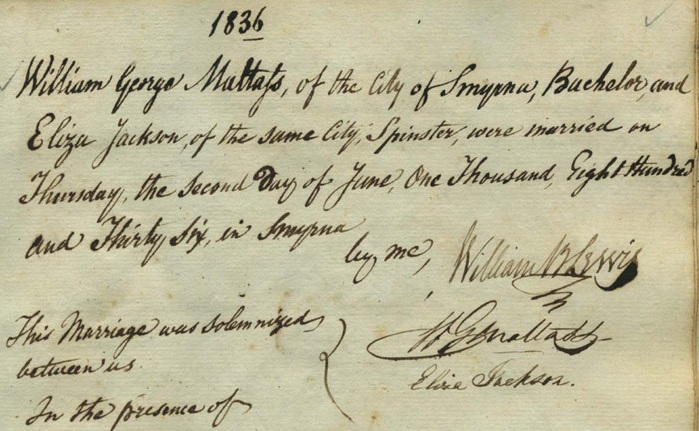 1836
William George Maltass, of the City of Smyrna, Bachelor, and
Eliza Jackson, of the same City, Spinster, were married on
Thursday, the second Day of June, One Thousand, Eight Hundred
and Thirty Six, in Smyrna
by me, William B Lewis
This Marriage was solemnized
between us
W G Maltass
Eliza Jackson.
In the presence of